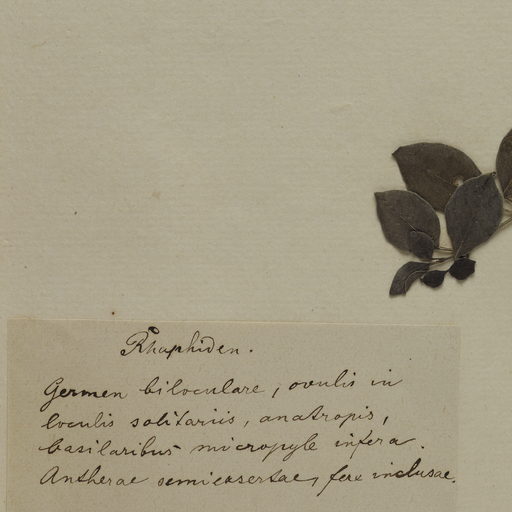 Rhaphiden.
Germen biloculare, ovulis in
loculis solitariis, anatropis,
basilaribus micropyle infera.
Antherae semiexsertae, fere inclusae.